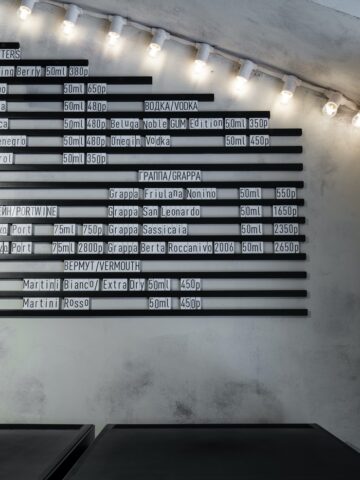 TTERS
Berry 50ml 380р
50ml 650р
50ml 480р ВОДКА/VODKA
50ml 480р Beluga Noble GUM Edition 50ml 350р
enegro 50ml 480р Onegin Vodka 50ml 450р
rol 50ml 350р
ГРАППА/GRAPPA
Grappa Friulana Nonino 50ml 550р
ЕЙН/PORTWINE Grappa San Leonardo 50ml 1650р
vo Port 75ml 750р Grappa Sassicaia 50ml 2350р
vo Port 75ml 2800р Grappa Berta Roccanivo 2006 50ml 2650р
ВЕРМУТ/VERMOUTH
Martini Bianco/ Extra Dry 50ml 450р
Martini Rosso 50ml 450р